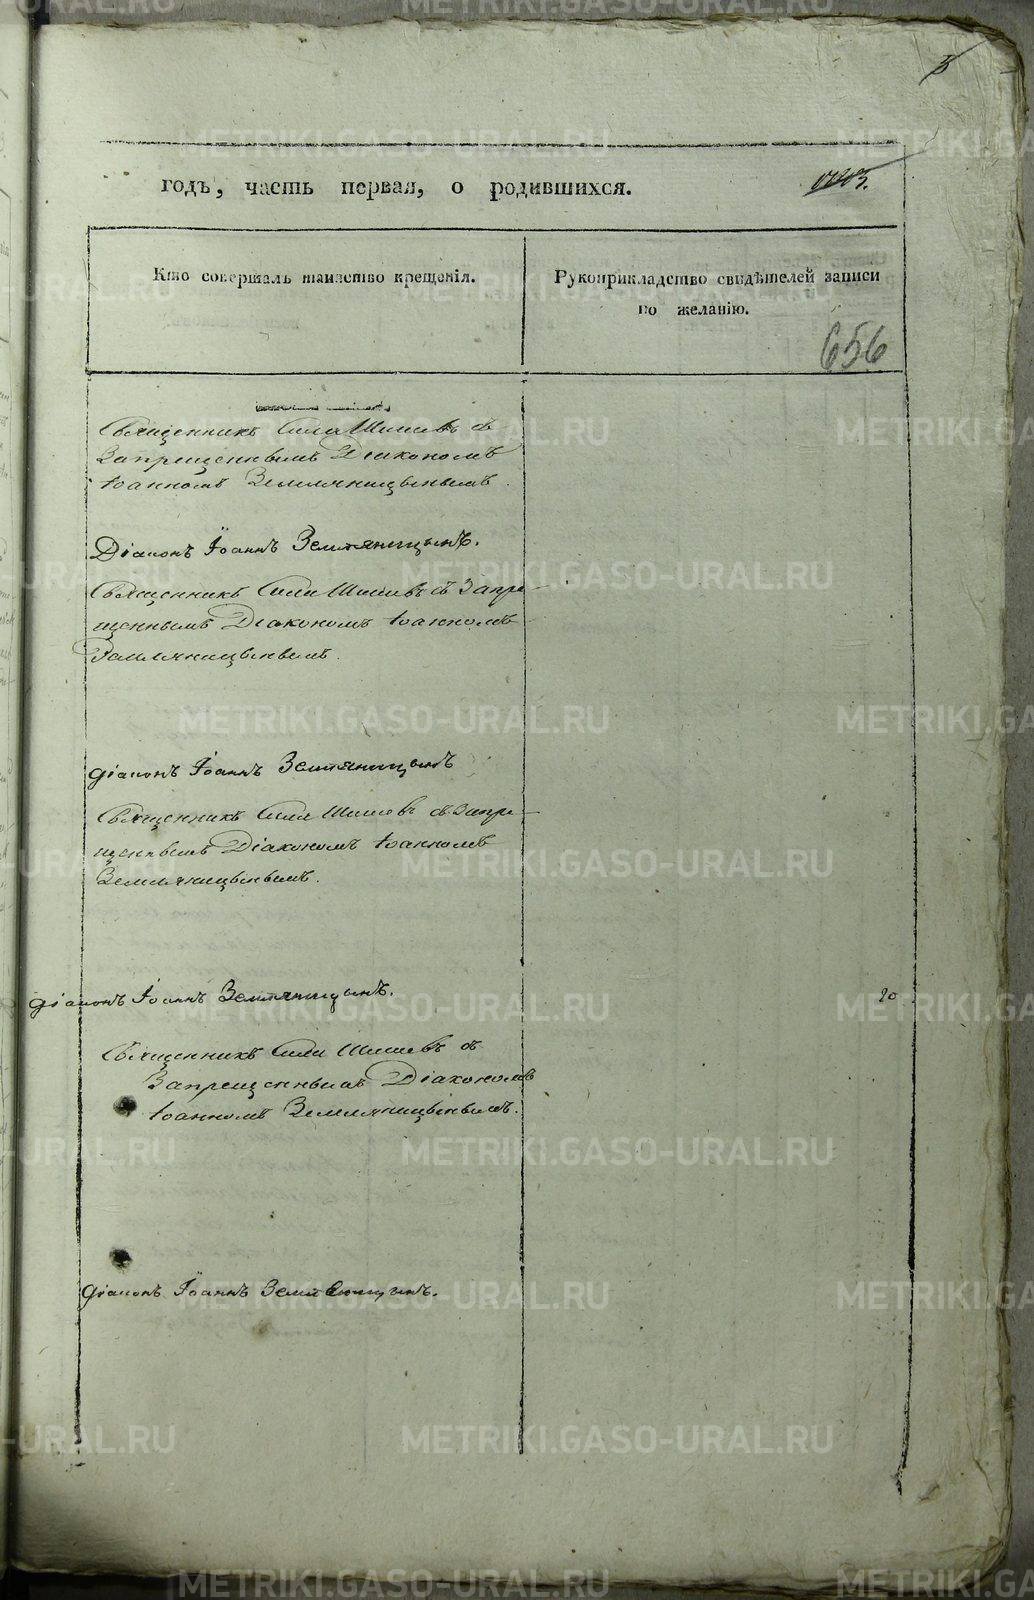 3
годъ, часть первая, о родившихся.
Кто совершалъ таинство крещенія.
Рукоприкладство свидѣтелей записи
по желанію.
656
Священникъ Сила Шишевъ съ
Запрещеннымъ Діакономъ
Іоанномъ Земляницынымъ.
Діаконъ Іоаннъ Земляницынъ.
Священникъ Сила Шишевъ съ Запре-
щеннымъ Діакономъ Іоанномъ
Земляницынымъ.
діаконъ Іоаннъ Земляницынъ
Священникъ Сила Шишевъ съ Запре-
щеннымъ Діакономъ Іоанномъ
Земляницынымъ.
діаконъ Іоаннъ Земляницынъ.
20
Священникъ Сила Шишевъ съ
Запрещеннымъ Діакономъ
Іоанномъ Земляницынымъ.
діаконъ Іоаннъ Земляницынъ.
METRIKI.GASO-URAL.RU